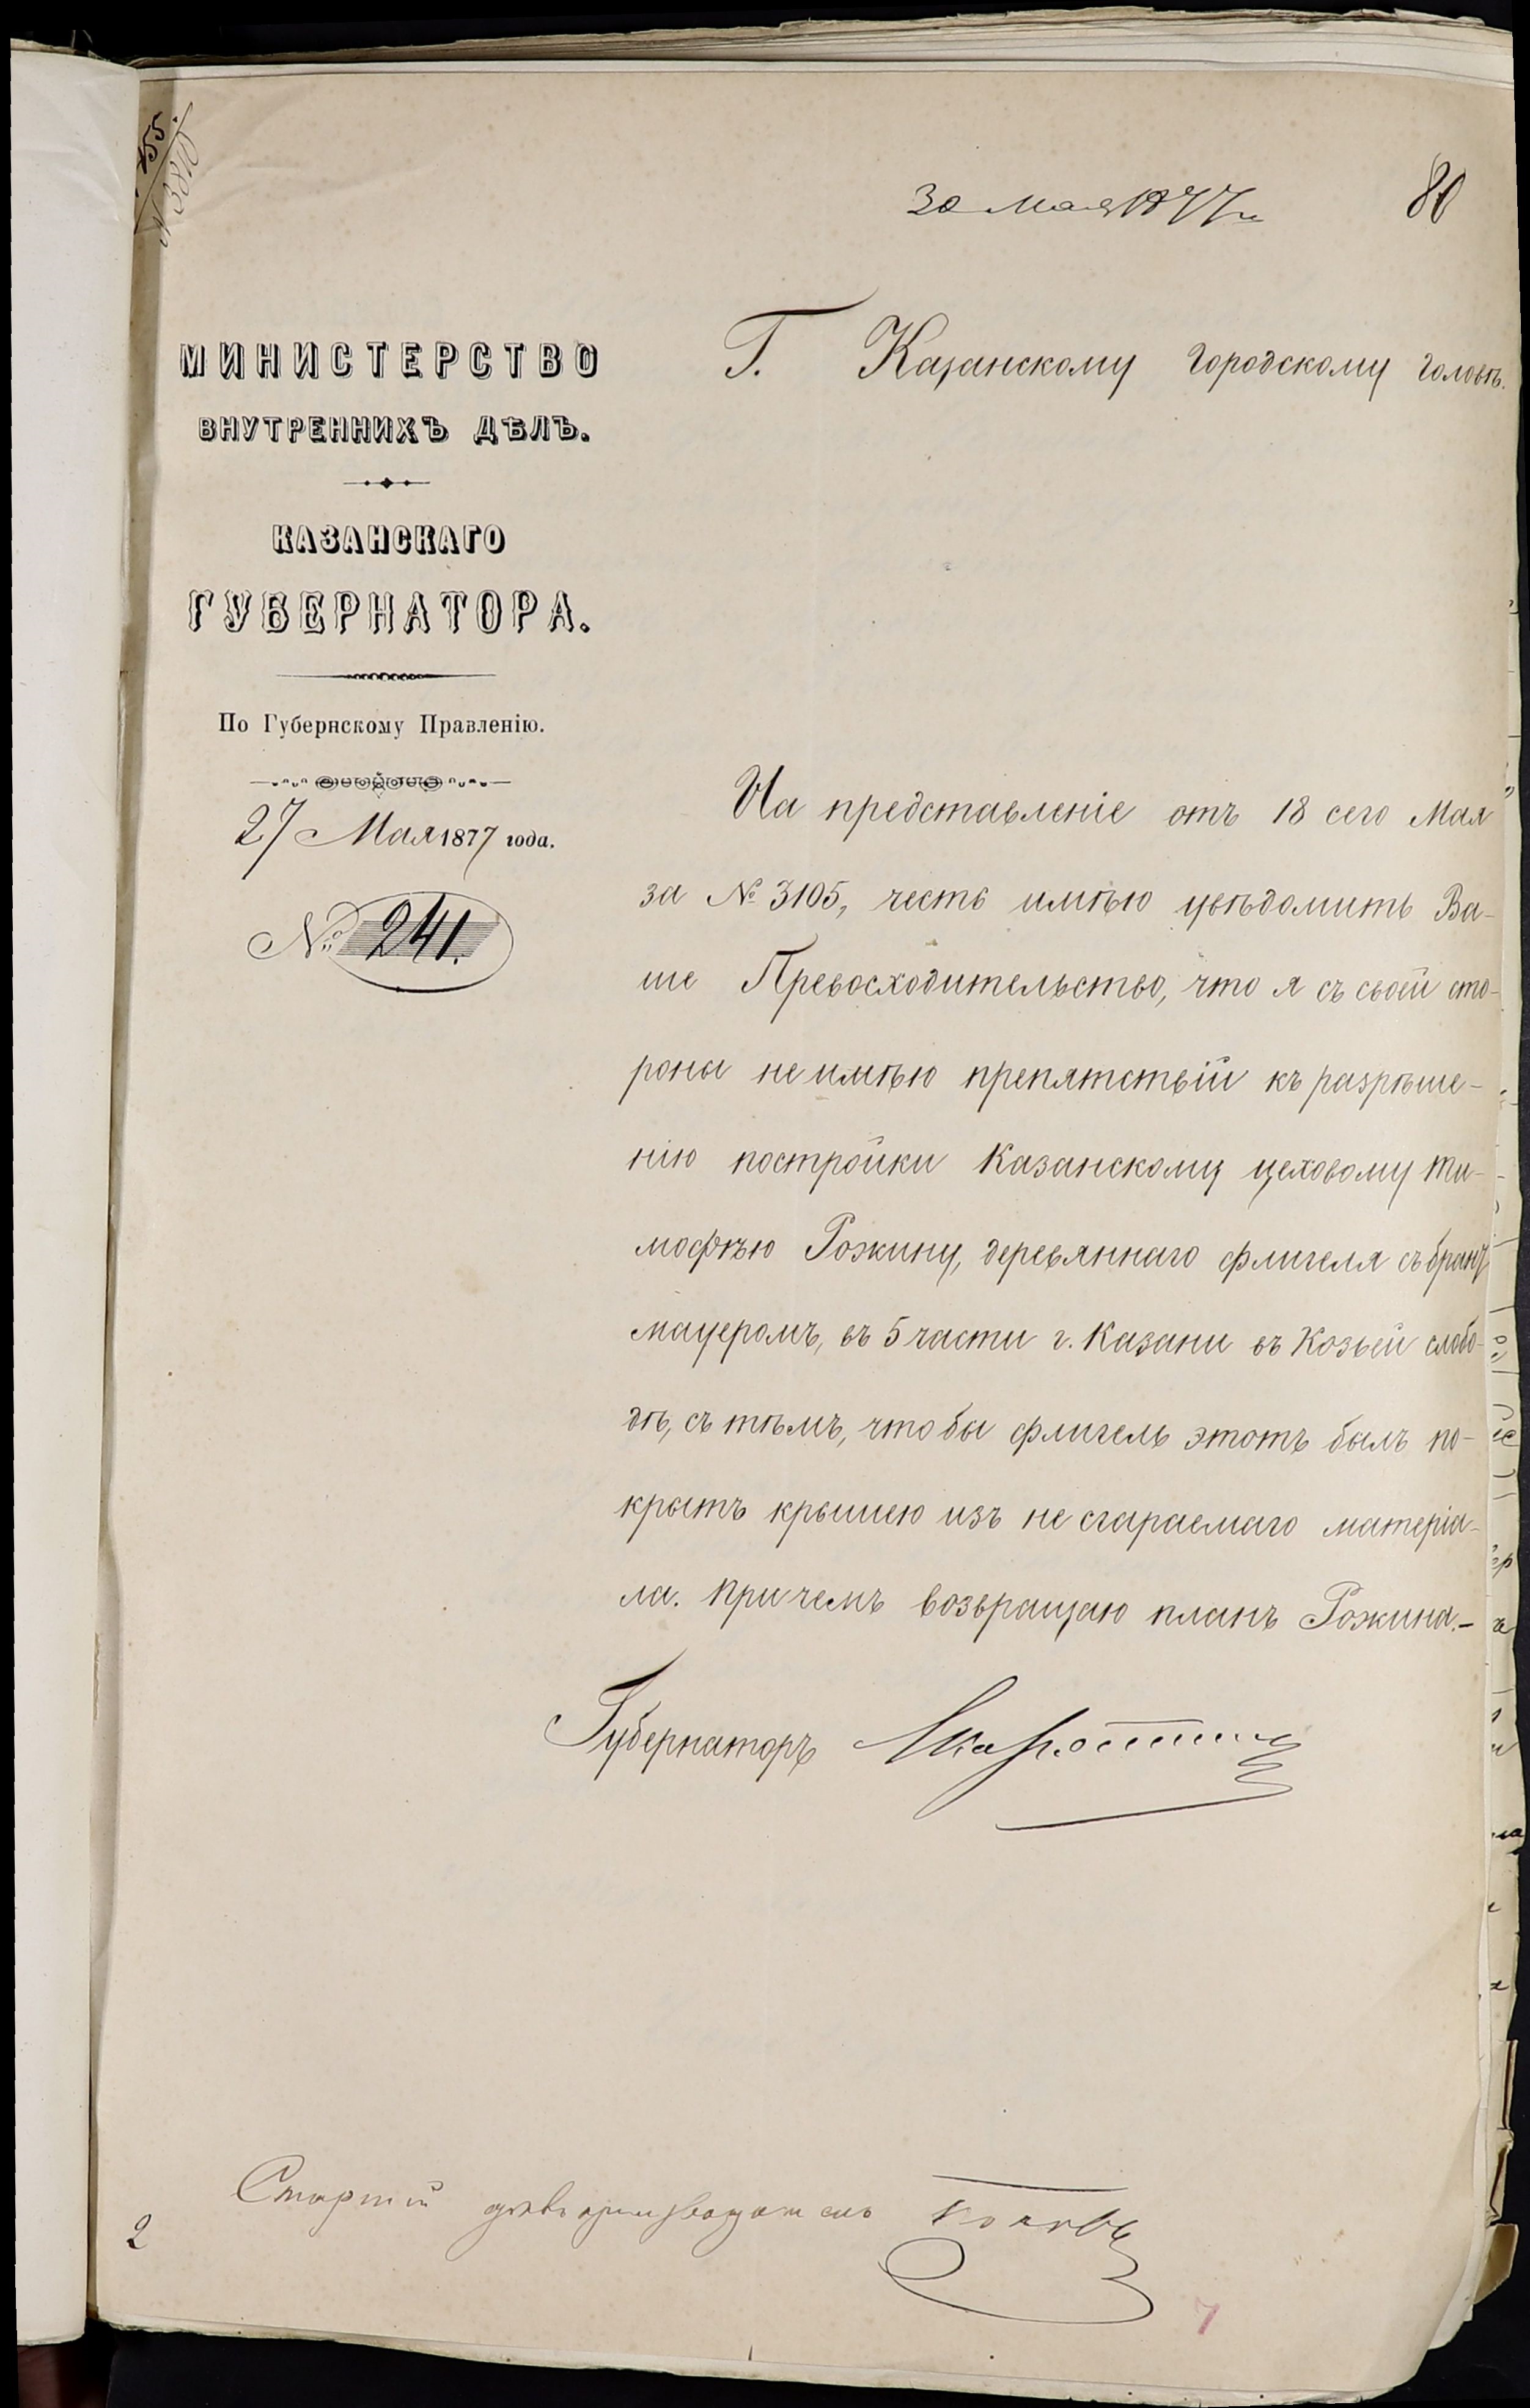 30 Мая 1877 г.
80
МИНИСТЕРСТВО
ВНУТРЕННИХЪ ДѢЛЪ.
КАЗАНСКАГО
ГУБЕРНАТОРА.
По Губернскому Правленію.
27 Мая 1877 года.
№ 241.
Г. Казанскому Городскому Головѣ.
На представленіе отъ 18 сего Мая
за № 3105, честь имѣю увѣдомить Ва-
ше Превосходительство, что я съ своей сто-
роны не имѣю препятствій къ разрѣше-
нію постройки Казанскому цеховому Ти-
мофѣю Рожину, деревяннаго флигеля съ бранд
мауеромъ, въ 5 части г. Казани въ Козьей слобо-
дѣ, съ тѣмъ, что бы флигель этотъ былъ по-
крытъ крышею изъ не сгараемаго матеріа-
ла. При чемъ возвращаю планъ Рожина.-
Губернаторъ
Старшій дѣлопроизводитель
2
7